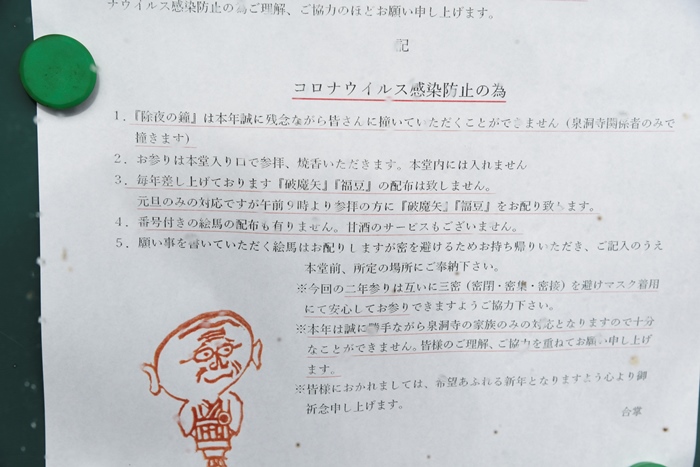 ナウイルス感染防止の為ご理解、ご協力のほどお願い申し上げます。
記
コロナウイルス感染防止の為
1.『除夜の鐘』は本年誠に残念ながら皆さんに撞いていただくことができません(泉洞寺関係者のみで
撞きます)
2.お参りは本堂入り口で参拝、焼香いただきます。本堂内には入れません
3.毎年差し上げております『破魔矢』『福豆』の配布は致しません。
元旦のみの対応ですが午前9時より参拝の方に『破魔矢』『福豆』をお配り致ます。
4.番号付きの絵馬の配布も有りません。甘酒のサービスもございません。
5.願い事を書いていただく絵馬はお配りしますが密を避けるためお持ち帰りいただき、ご記入のうえ
本堂前、所定の場所にご奉納下さい。
※今回の二年参りは互いに三密(密閉・密集・密接)を避けマスク着用
にて安心してお参りできますようご協力下さい。
※本年は誠に勝手ながら泉洞寺の家族のみの対応となりますので十分
なことができません。皆様のご理解、ご協力を重ねてお願い申し上げ
ます。
※皆様におかれましては、希望あふれる新年となりますよう心より御
祈念申し上げます。
合掌